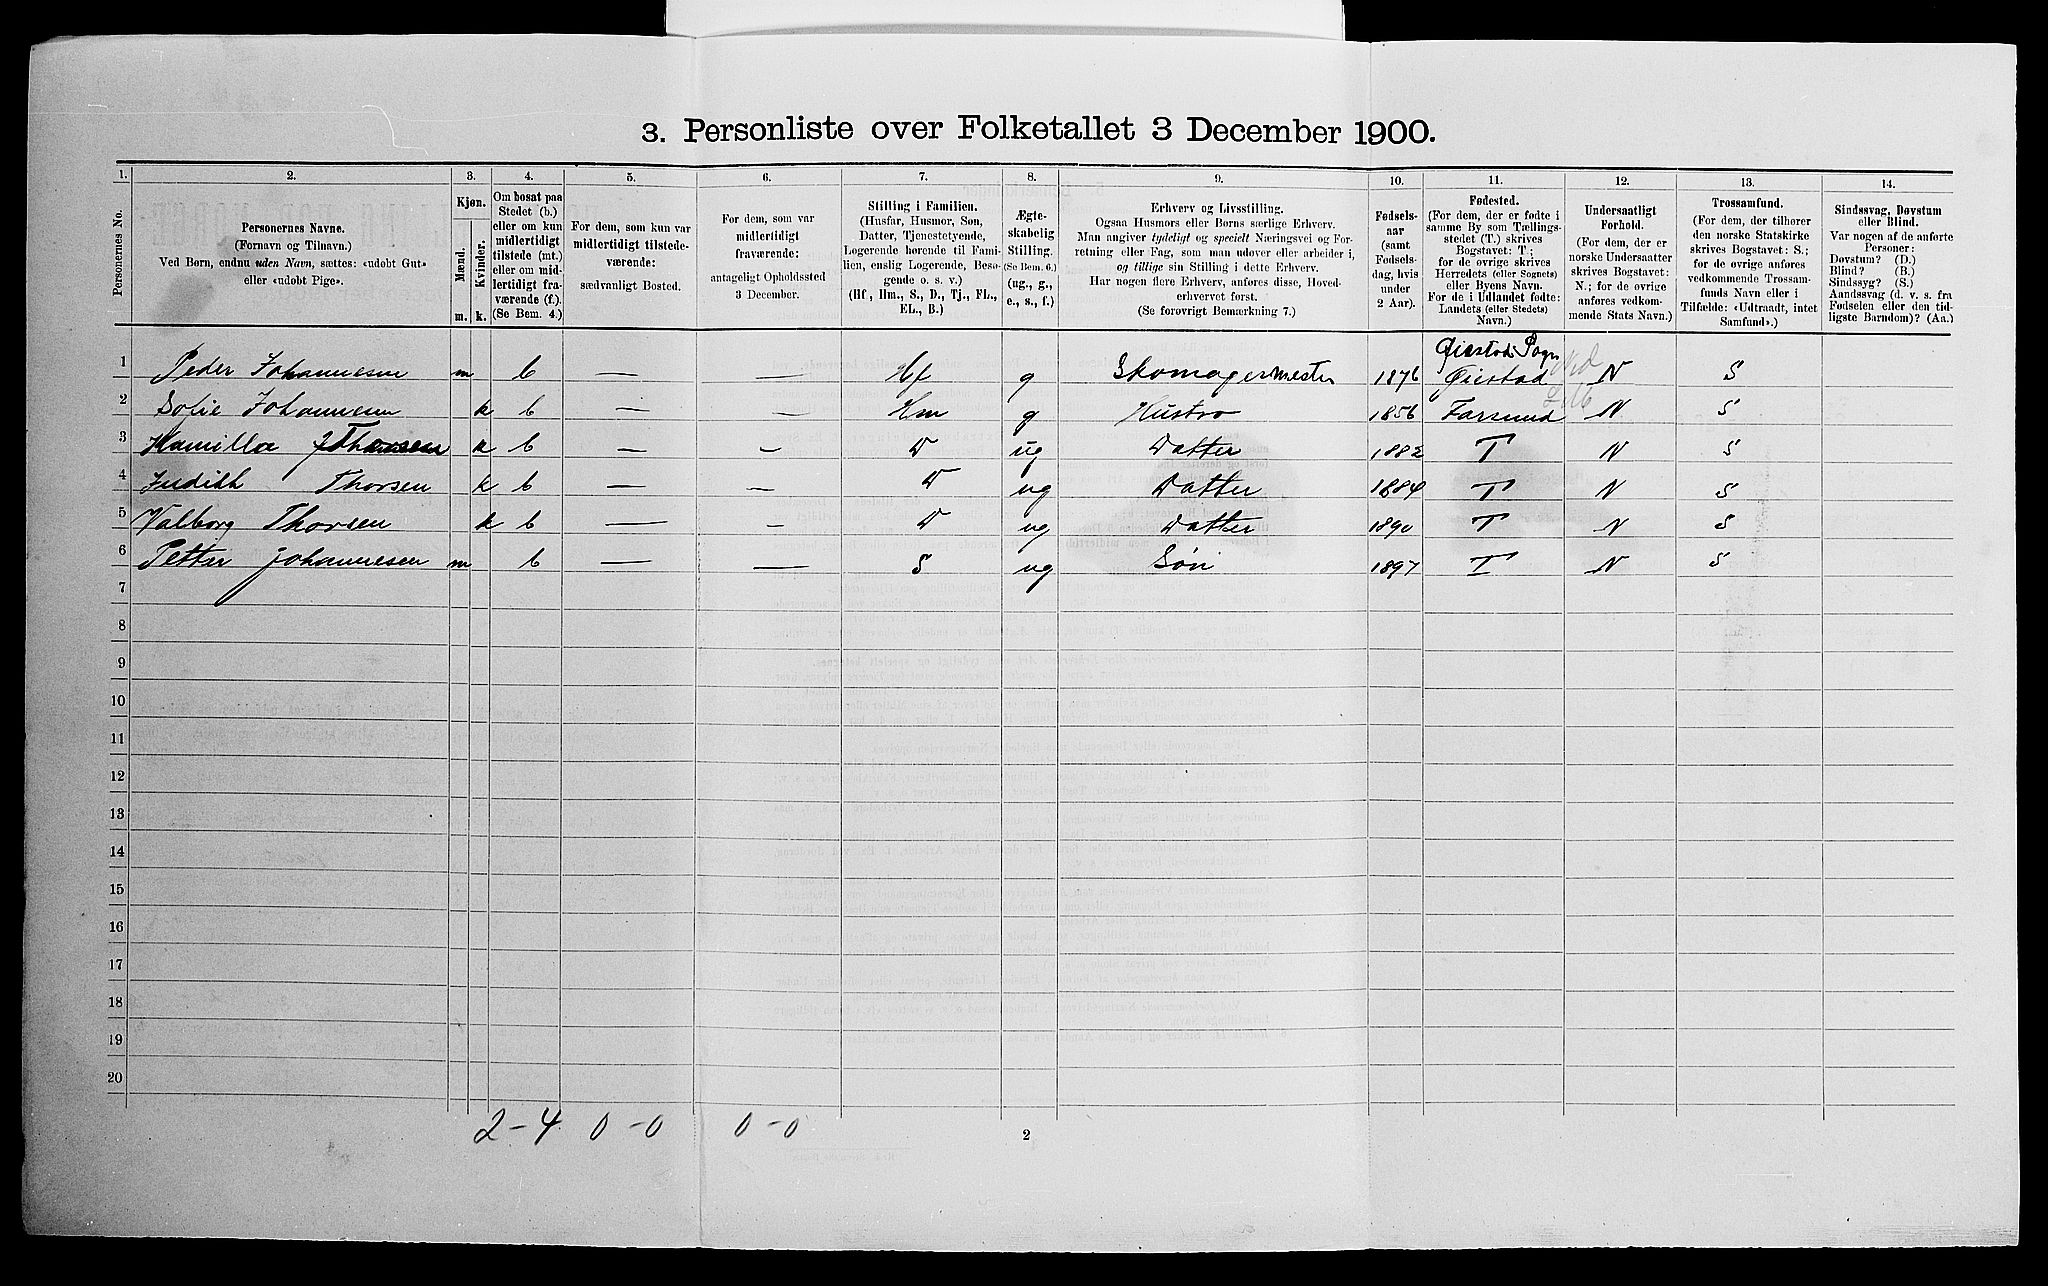 3. Personliste over Folketallet 3 December 1900.
1. 2. 3. 4. 5. 6. 7. 8. 9. 10. 11. 12. 13. 14.
Personernes No.
Personernes Navne.
(Fornavn og Tilnavn.)
Ved Børn, endnu uden Navn, sættes: «udøbt Gut»
eller «udøbt Pige».
Kjøn.
Mænd.
Kvinder.
m. k.
Om bosat paa
Stedet (b.)
eller om kun
midlertidigt
tilstede (mt.)
eller om mid-
lertidigt fra-
værende (f.).
(Se Bem. 4.)
For dem, som kun var
midlertidigt tilstede-
værende:
sædvanligt Bosted.
For dem, som var
midlertidigt
fraværende:
antageligt Opholdssted
3 December.
Stilling i Familien.
(Husfar, Husmor, Søn,
Datter, Tjenestetyende,
Logerende hørende til Fami-
lien, enslig Logerende, Besø-
gende o. s. v.)
(Hf, Hm., S., D., Tj., FL.,
EL., B.)
Ægte-
skabelig
Stilling.
(Se Bem. 6.)
(ug., g.,
e., s., f.)
Erhverv og Livsstilling.
Ogsaa Husmors eller Børns særlige Erhverv.
Man angiver tydeligt og specielt Næringsvei og For-
retning eller Fag, som man udøver eller arbeider i,
og tillige sin Stilling i dette Erhverv.
Har nogen flere Erhverv, anføres disse, Hoved-
erhvervet først.
(Se forøvrigt Bemærkning 7.)
Fødsels-
aar
(samt
Fødsels-
dag, hvis
under
2 Aar).
Fødested.
(For dem, der er fødte i
samme By som Tællings-
stedet (T.) skrives
Bogstavet: T;
for de øvrige skrives
Herredets (eller Sognets)
eller Byens Navn.
For de i Udlandet fødte:
Landets (eller Stedets)
Navn.)
Undersaatligt
Forhold.
(For dem, der er
norske Undersaatter
skrives Bogstavet:
N.; for de øvrige
anføres vedkom-
mende Stats Navn.)
Trossamfund.
(For dem, der tilhører
den norske Statskirke
skrives Bogstavet: S.;
for de øvrige anføres
vedkommende Trossam-
funds Navn eller i
Tilfælde: «Udtraadt, intet
Samfund».)
Sindssvag, Døvstum
eller Blind.
Var nogen af de anførte
Personer:
Døvstum? (D.)
Blind? (B.)
Sindssyg? (S.)
Aandssvag (d. v. s. fra
Fødselen eller den tid-
ligste Barndom)? (Aa.)
Øiestad Sogn
1 Peder Johannesen m b — — Hf g Skomagermester 1876 Øiestad N S
2 Sofie Johannesen k b — — Hm g Hustro 1856 Farsund N S
3 Kamilla Thorsen k b — — D ug Datter 1882 T N S
4 Judith Thorsen k b — — D ug Datter 1884 T N S
5 Valborg Thorsen k b — — D ug Datter 1890 T N S
6 Petter Johannesen m b — — S ug Søn 1897 T N S
7
8
9
10
11
12
13
14
15
16
17
18
19
20
2-4 0-0 0-0
2